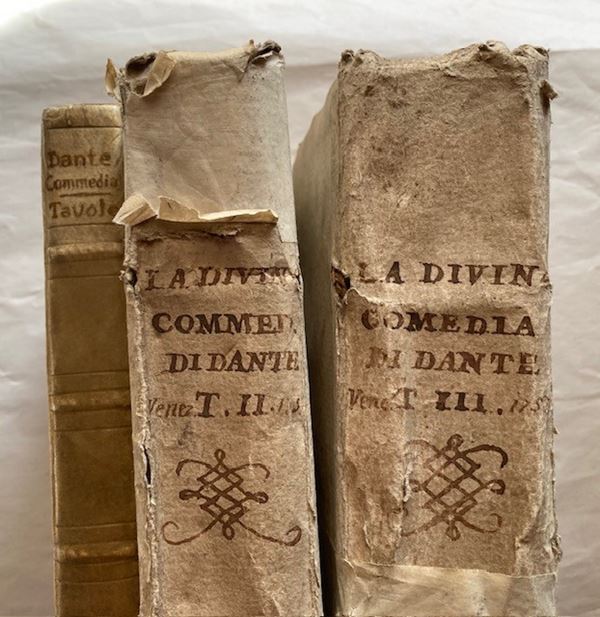 Dante
Commedia
Tavole
LA DIVIN
COMMED
DI DANTE
Venez. T. II.
LA DIVIN
COMEDIA
DI DANTE
Venez. T. III. 1757